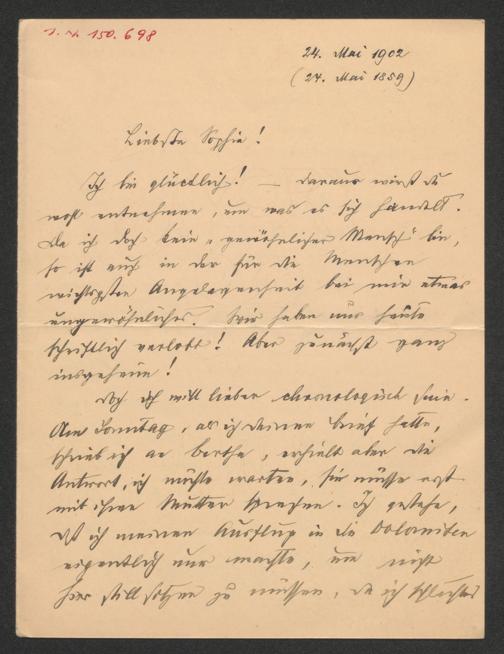 I. N. 150.698
24. Mai 1902
(24. Mai 1859)
Liebste Sophie!
Ich bin glücklich! — daraus wirst du
wohl entnehmen, um was es sich handelt.
Da ich doch kein „gewöhnlicher Mensch" bin,
so ist auch in der für die Menschen
wichtigsten Angelegenheit bei mir etwas
ungewöhnliches. Wir haben uns heute
schriftlich verlobt! Aber zunächst ganz
insgeheim!
Doch ich will lieber chronologisch sein.
Am Sonntag, als ich deinen Brief hatte,
schrieb ich an Bertha, erhielt aber die
Antwort, ich möchte warten, sie müsse erst
mit ihrer Mutter sprechen. Ich gestehe,
daß ich meinen Ausflug in die Dolomiten
eigentlich nur machte, um nicht
hier still sitzen zu müssen, da ich schlechtes